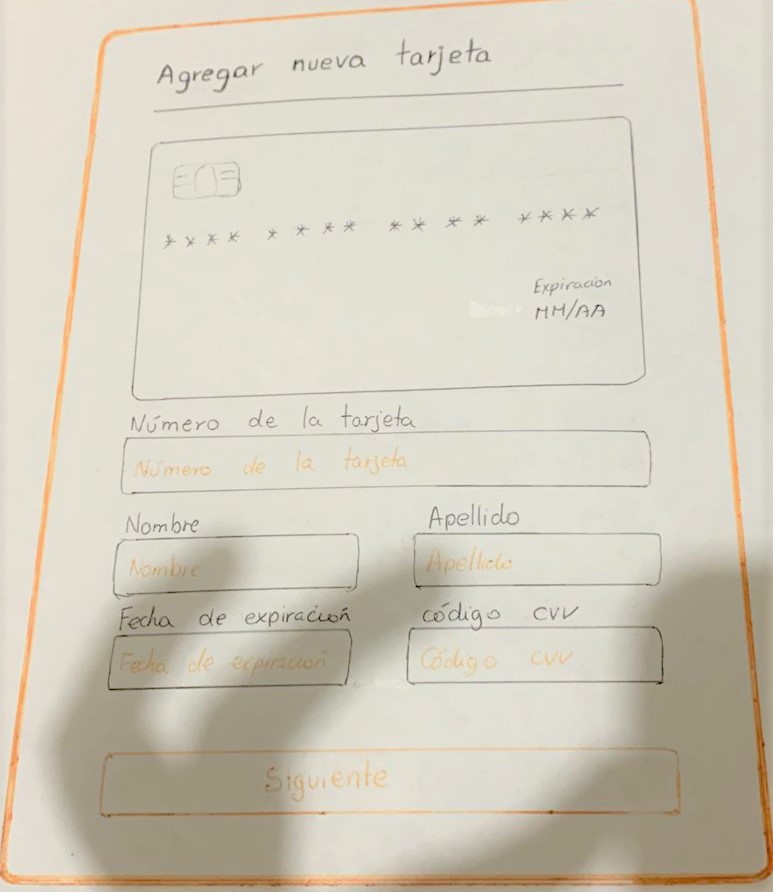 Agregar nueva tarjeta
**** **** **** ****
Expiración
MM/AA
Número de la tarjeta
Número de la tarjeta
Nombre Apellido
Nombre Apellido
Fecha de expiración código cvv
Fecha de expiración Código cvv
Siguiente